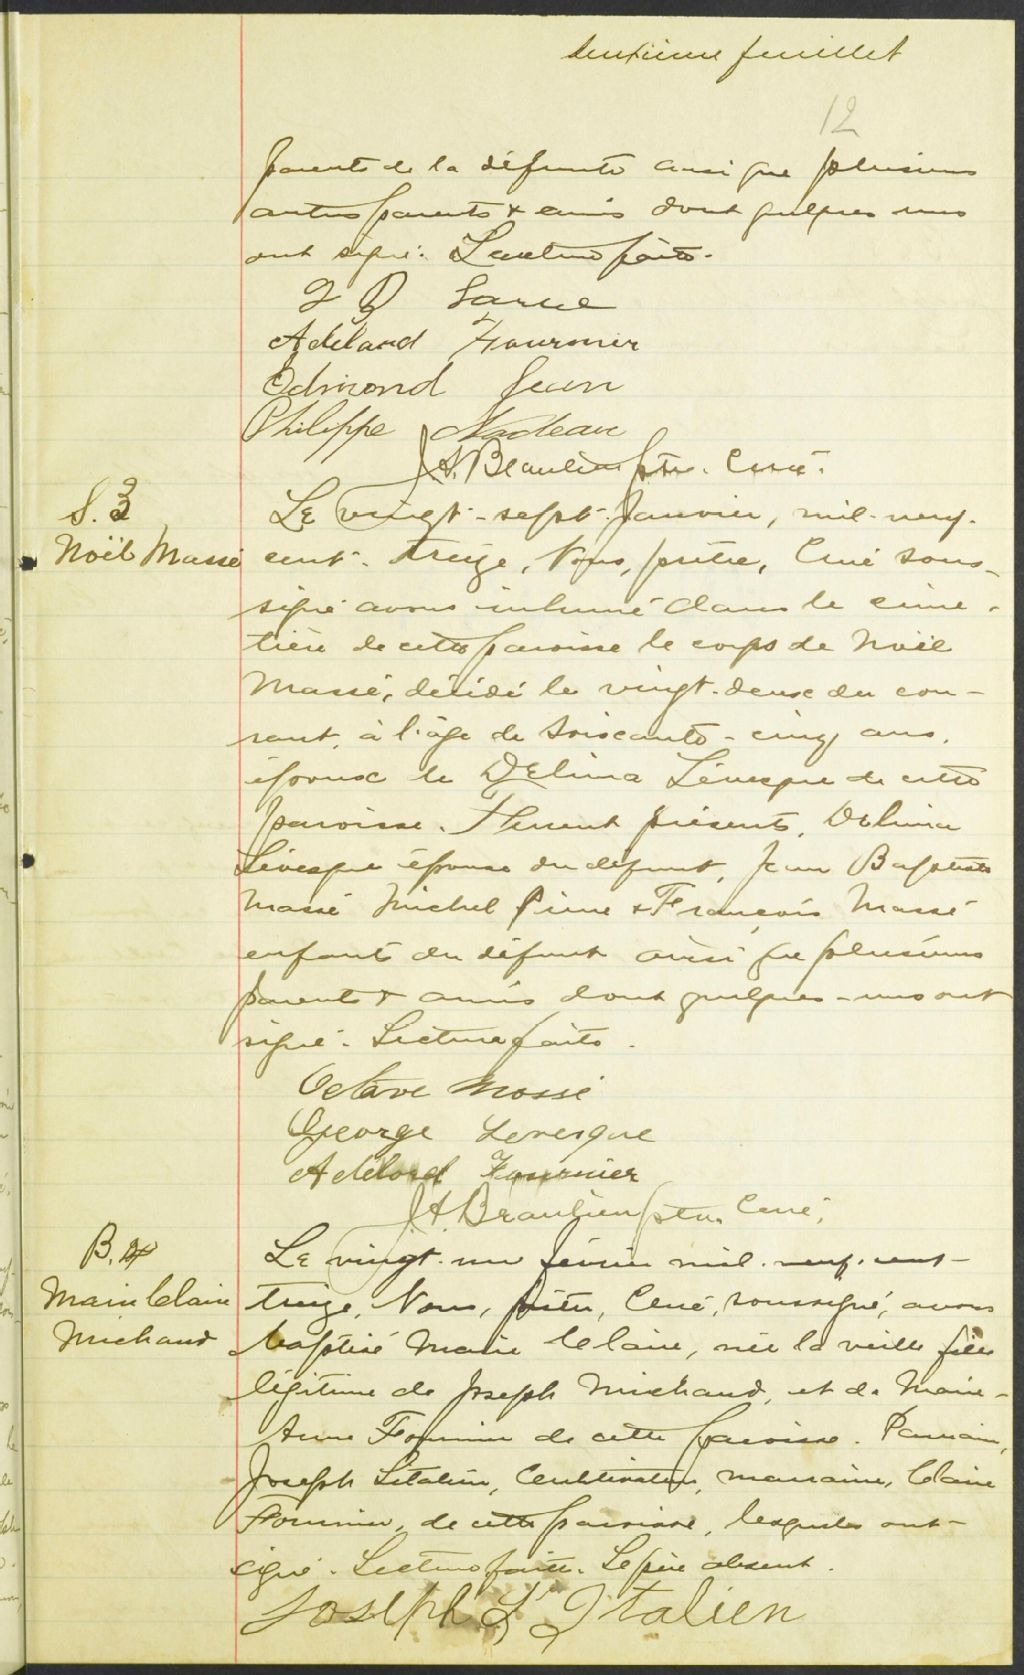 deuxième feuillet
12
parents de la défunte ainsi que plusieurs
autres parents & amis dont quelques uns
ont signé. Lecture faite.
Adélard Fournier
Edmond Jean
Philippe Nadeau
J.A. Beaulieu ptre. Curé.
S. 3
Noël Massé
Le vingt-sept Janvier, mil-neuf-
cent-treize, Nous, prêtre, Curé sous-
signé avons inhumé dans le cime-
tière de cette paroisse le corps de Noël
Massé, décédé le vingt-deux du cou-
rant, à l'âge de soixante-cinq ans,
époux de Délima Lévesque de cette
paroisse. Furent présents, Délima
Lévesque épouse du défunt, Jean Baptiste
Massé Michel & François Massé
enfants du défunt ainsi que plusieurs
parents & amis dont quelques-uns ont
signé. Lecture faite.
Octave Massé
George Levesque
Adélard Fournier
J.A. Beaulieu ptre. Curé.
B. 4
Marie Claire
Michaud
Le vingt-un février mil-neuf-cent-
treize, Nous, prêtre, Curé, soussigné, avons
baptisé Marie Claire, née la veille fille
légitime de Joseph Michaud, et de Marie-
Anne Fournier de cette paroisse. Parrain,
Joseph Litalien, Cultivateur, marraine, Claire
Fournier, de cette paroisse, lesquels ont
signé. Lecture faite. Le père absent.
Joseph L'Italien